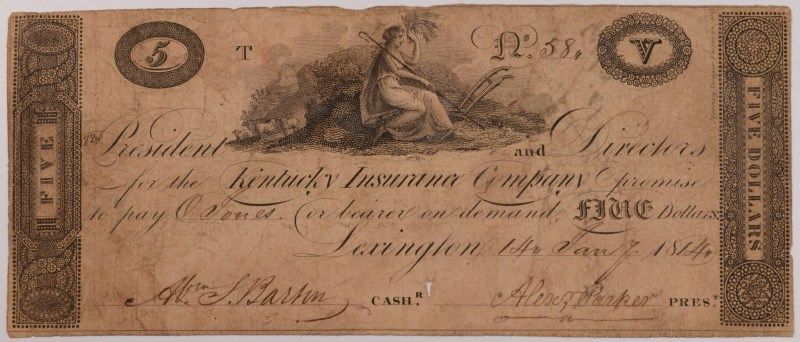 5 T Nº. 58, V
FIVE
The President and Directors
for the Kentucky Insurance Company promise
to pay O Jones. or bearer on demand, FIVE Dollars,
Lexington 14, Jany 1814,
Abm S. Barton CASHR. Alexr Parker PREST
FIVE DOLLARS